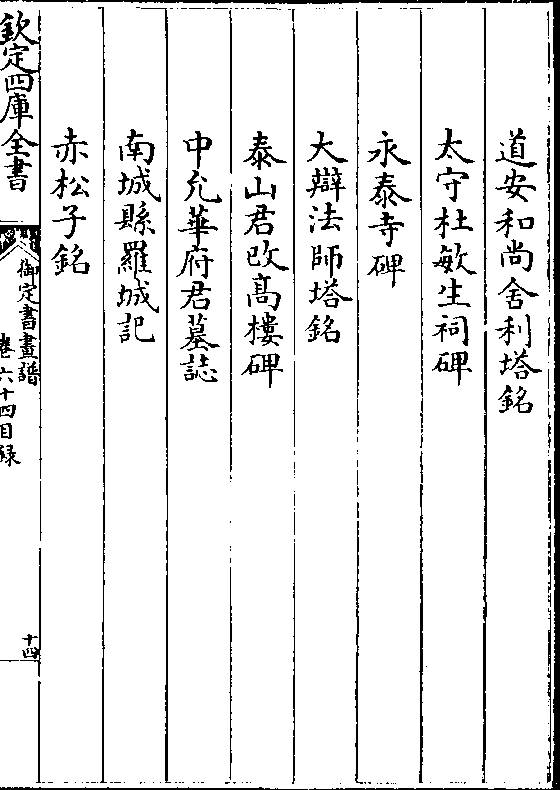 道安和尚舍利塔銘
太守杜敏生祠碑
永泰寺碑
大辯法師塔銘
泰山君改髙樓碑
中允華府君墓誌
南城縣羅城記
赤松子銘
欽定四庫全書
御定書畫譜
卷六十四目録
十四